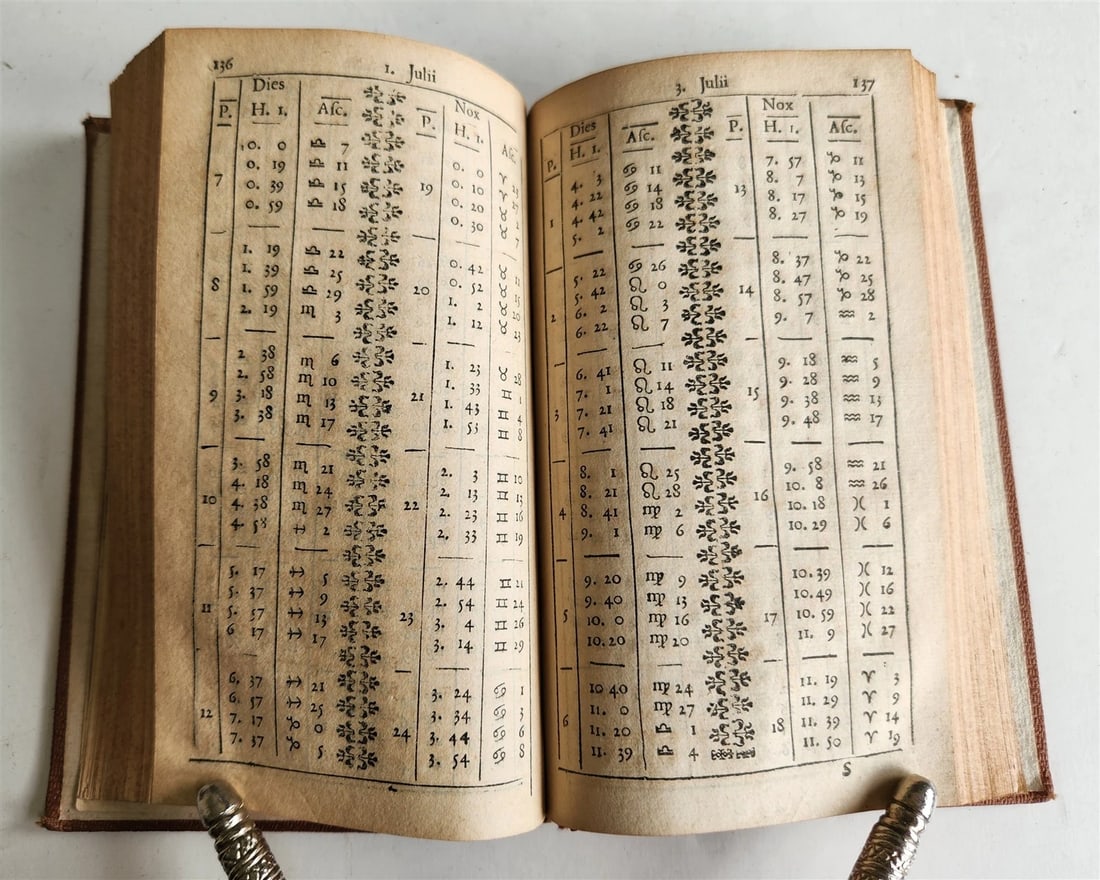 136 1. Julii
Dies Nox
P. H. 1. Aſc. P. H. 1. Aſc.
0. 0 ♎ 7 0. 0 ♈
0. 19 ♎ 11 0. 10 ♈
7 0. 39 ♎ 15 19 0. 20 ♉
0. 59 ♎ 18 0. 30 ♉ 7
1. 19 ♎ 22 0. 42 ♉ 11
1. 39 ♎ 25 0. 52 ♉ 15
8 1. 59 ♎ 29 20 1. 2 ♉ 20
2. 19 ♏ 3 1. 12 ♉ 23
2 38 ♏ 6 1. 23 ♉ 28
2. 58 ♏ 10 1. 33 ♊ 1
9 3. 18 ♏ 13 21 1. 43 ♊ 4
3. 38 ♏ 17 1. 53 ♊ 8
3. 58 ♏ 21 2. 3 ♊ 10
4. 18 ♏ 24 2. 13 ♊ 13
10 4. 38 ♏ 27 22 2. 23 ♊ 16
4. 58 ♐ 2 2. 33 ♊ 19
5. 17 ♐ 5 2. 44 ♊ 21
5. 37 ♐ 9 2. 54 ♊ 24
11 5. 57 ♐ 13 23 3. 4 ♊ 26
6 17 ♐ 17 3. 14 ♊ 29
6. 37 ♐ 21 3. 24 ♋ 1
6. 57 ♐ 25 3. 34 ♋ 3
12 7. 17 ♑ 0 24 3. 44 ♋ 6
7. 37 ♑ 5 3. 54 ♋ 8
3. Julii 137
Dies Nox
P. H. 1. Aſc. P. H. 1. Aſc.
4. 3 ♋ 11 7. 57 ♑ 11
4. 22 ♋ 14 8. 7 ♑ 13
1 4. 42 ♋ 18 13 8. 17 ♑ 15
5. 2 ♋ 22 8. 27 ♑ 19
5. 22 ♋ 26 8. 37 ♑ 22
5. 42 ♌ 0 8. 47 ♑ 25
2 6. 2 ♌ 3 14 8. 57 ♑ 28
6. 22 ♌ 7 9. 7 ♒ 2
6. 41 ♌ 11 9. 18 ♒ 5
7. 1 ♌ 14 9. 28 ♒ 9
3 7. 21 ♌ 18 15 9. 38 ♒ 13
7. 41 ♌ 21 9. 48 ♒ 17
8. 1 ♌ 25 9. 58 ♒ 21
8. 21 ♌ 28 10. 8 ♒ 26
4 8. 41 ♍ 2 16 10. 18 ♓ 1
9. 1 ♍ 6 10. 29 ♓ 6
9. 20 ♍ 9 10. 39 ♓ 12
9. 40 ♍ 13 10. 49 ♓ 16
5 10. 0 ♍ 16 17 10. 59 ♓ 22
10. 20 ♍ 20 11. 9 ♓ 27
10 40 ♍ 24 11. 19 ♈ 3
11. 0 ♍ 27 11. 29 ♈ 9
6 11. 20 ♎ 1 18 11. 39 ♈ 14
11. 39 ♎ 4 11. 50 ♈ 19
S